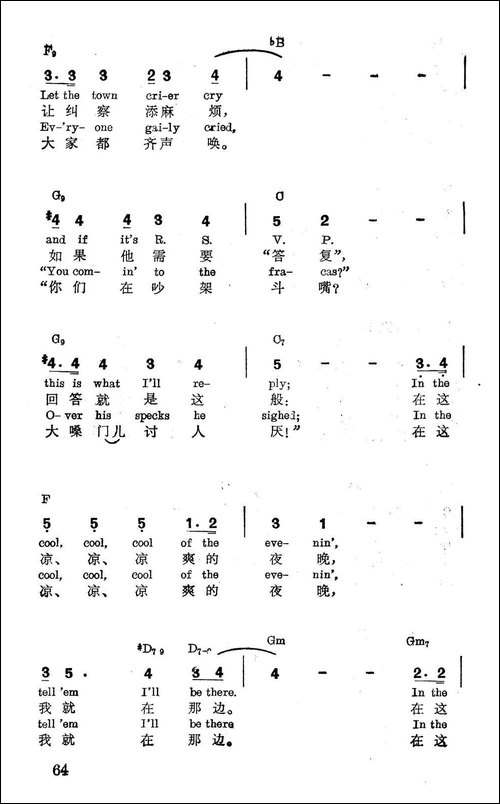 F9 bB
3. 3 3 2 3 4 | 4 - - - |
Let the town cri-er cry
让 纠 察 添 麻 烦,
Ev-'ry- one gai-ly cried,
大 家 都 齐 声 唤。
G9 C
#4 4 4 3 4 | 5 2 - - |
and if it's R. S. V. P.
如 果 他 需 要 “答 复”,
“You com- in' to the fra- cas?”
“你 们 在 吵 架 斗 嘴?
G9 C7
#4. 4 4 3 4 | 5 - - 3. 4 |
this is what I'll re- ply; In the
回 答 就 是 这 般: 在 这
O- ver his specks he sighed; In the
大 嗓 门儿 讨 人 厌!” 在 这
F
5 5 5 1. 2 | 3 1 - - |
cool, cool, cool of the eve- nin',
凉、 凉、 凉 爽 的 夜 晚,
cool, cool, cool of the eve- nin',
凉、 凉、 凉 爽 的 夜 晚,
#D7 9 D7 Gm Gm7
3 5 . 4 3 4 | 4 - - 2. 2 |
tell 'em I'll be there. In the
我 就 在 那 边。 在 这
tell 'em I'll be there In the
我 就 在 那 边。 在 这
64